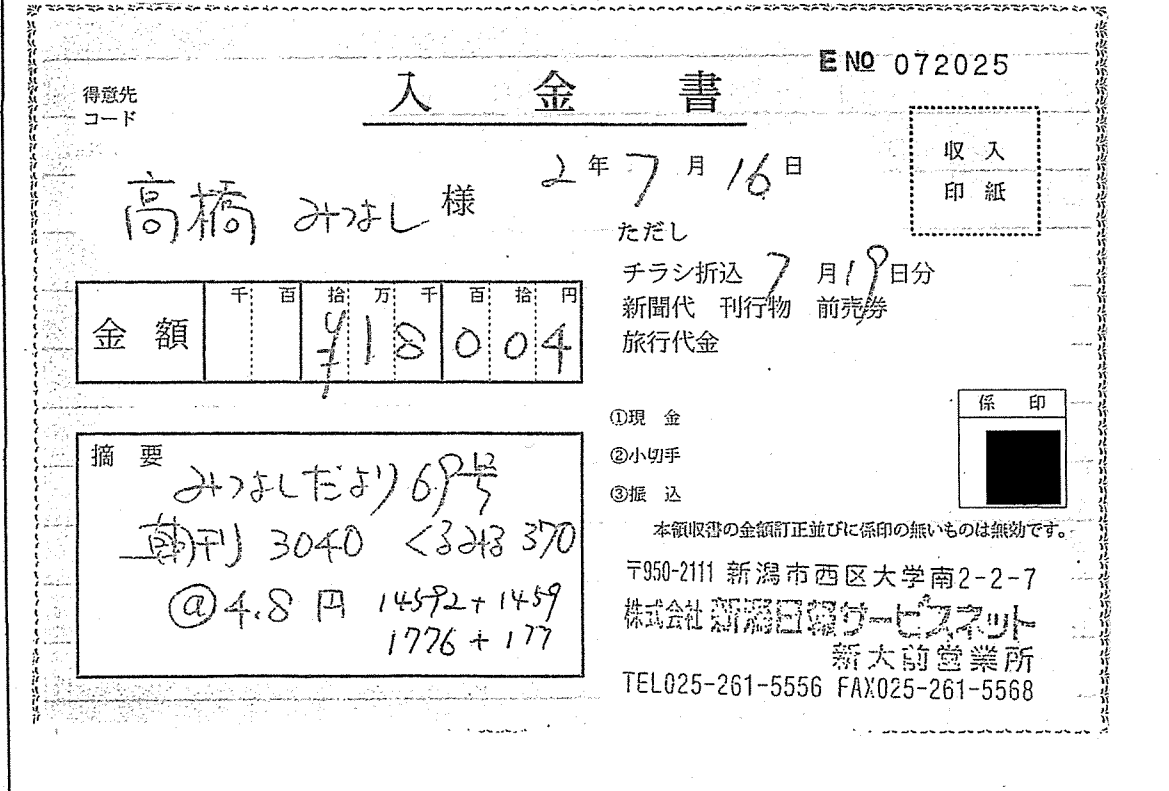 E NO 072025
得意先
コード
入金書
2年7月16日
高橋 みつよし 様
収入
印紙
ただし
チラシ折込 7月19日分
新聞代 刊行物 前売券
旅行代金
千 百 拾 万 千 百 拾 円
金額 ¥18004
①現 金
②小切手
③振 込
係 印
摘 要
みつよしだより69号
朝刊 3040 くるみ 370
@4.8円 14592+1459
1776+177
本領収書の金額訂正並びに係印の無いものは無効です。
〒950-2111 新潟市西区大学南2-2-7
株式会社 新潟日報サービスネット
新大前営業所
TEL025-261-5556 FAX025-261-5568